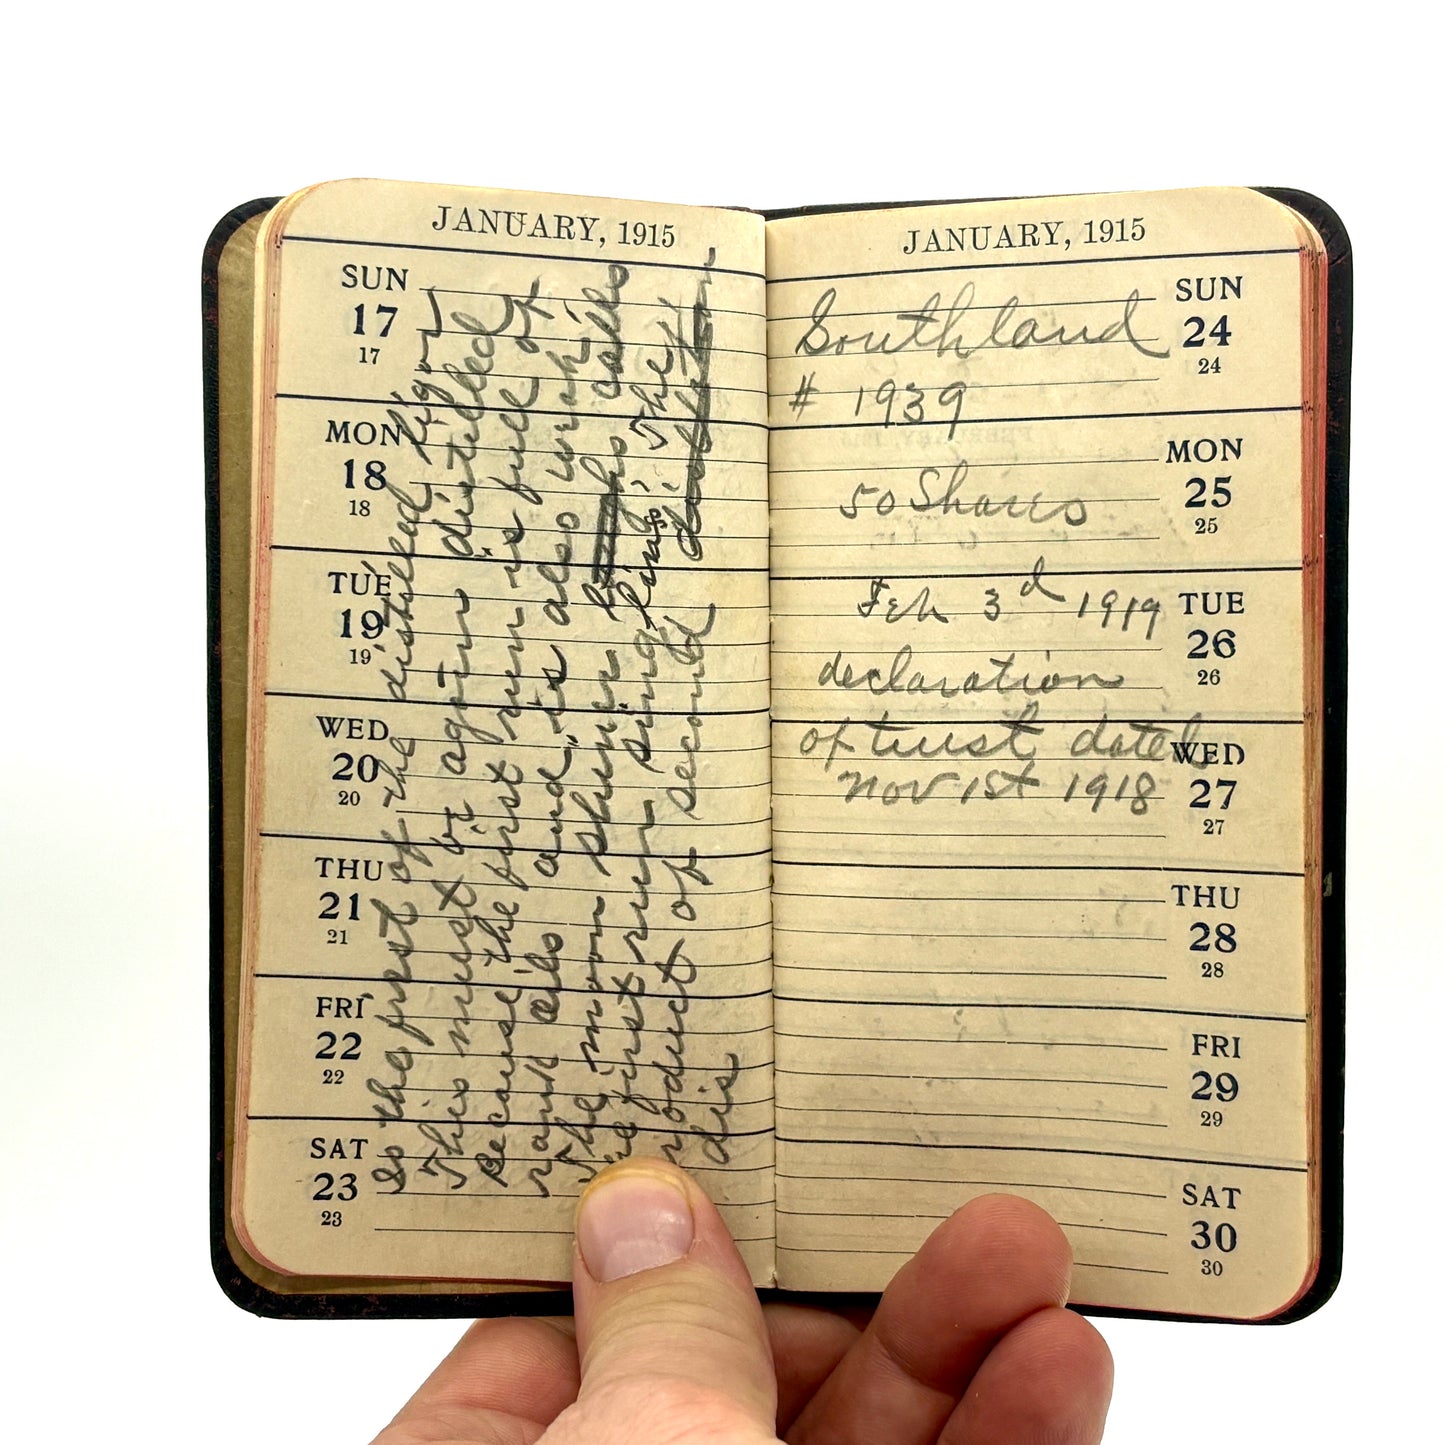 JANUARY, 1915
SUN
17
17
MON
18
18
TUE
19
19
WED
20
20
THU
21
21
FRI
22
22
SAT
23
23
So the first of the distilled
This must be again distilled
Because the first run is full of
rank oils and is also
The moon shiner calls
first run singlings The
product of second
dis
JANUARY, 1915
SUN
24
24
MON
25
25
TUE
26
26
WED
27
27
THU
28
28
FRI
29
29
SAT
30
30
Southland
# 1939
50 Shares
Feb 3d 1919
declaration
of trust dated
Nov 1st 1918